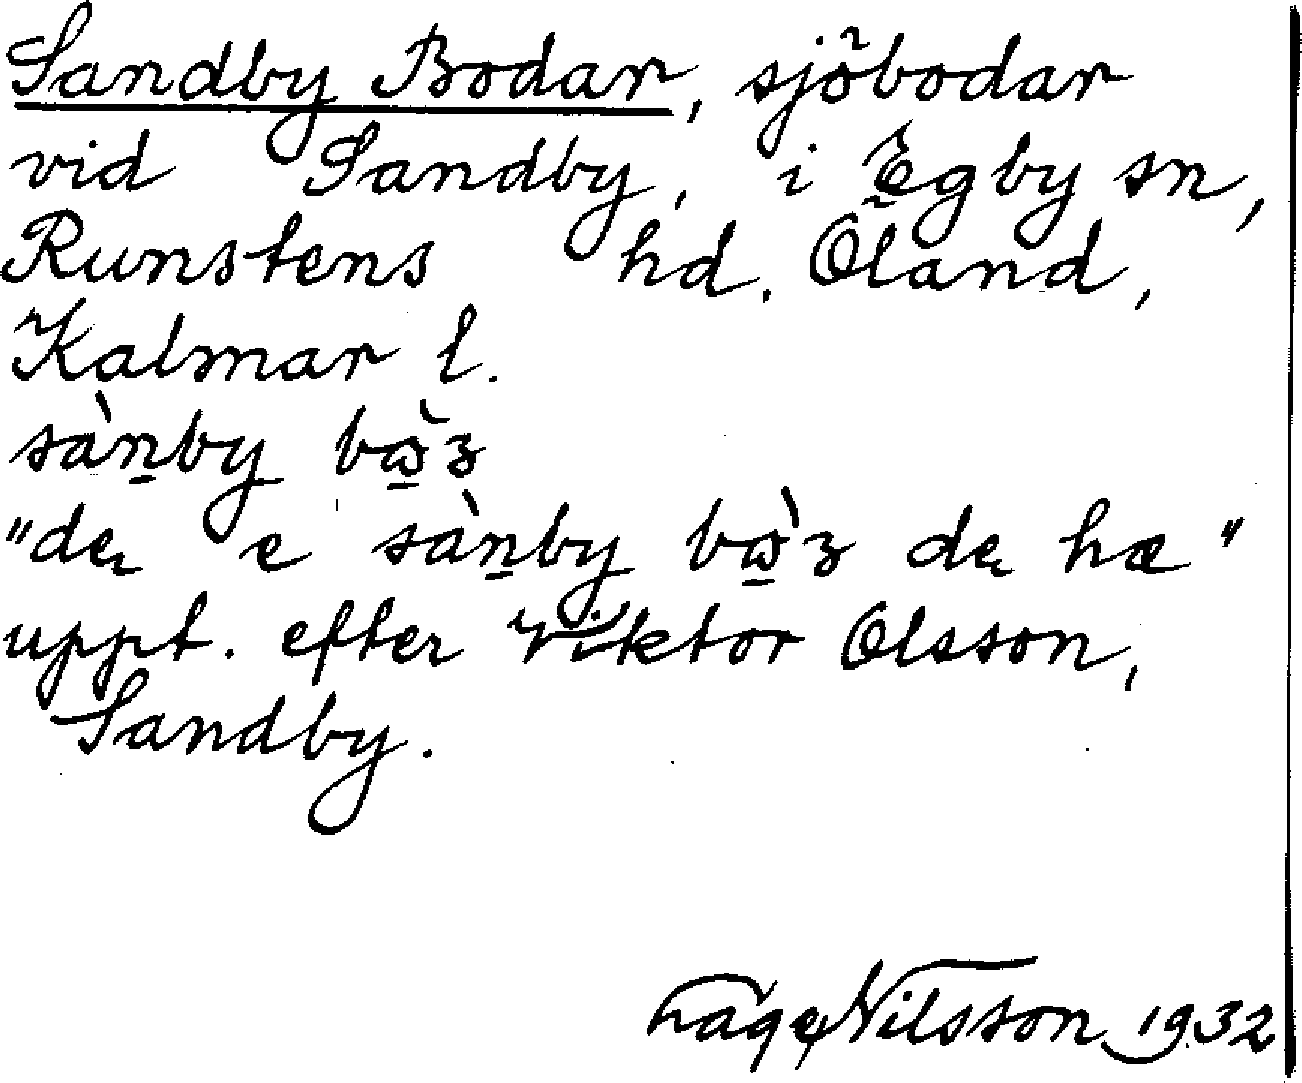 Sandby Bodar, sjöbodar
vid Sandby, i Egby sn,
Runstens hd. Öland,
Kalmar l.
sàn̠by bὼ̠z
"dę e sàn̠by bὼ̠z dę hæ"
uppt. efter Viktor Olsson,
Sandby.
Låge Nilsson 1932